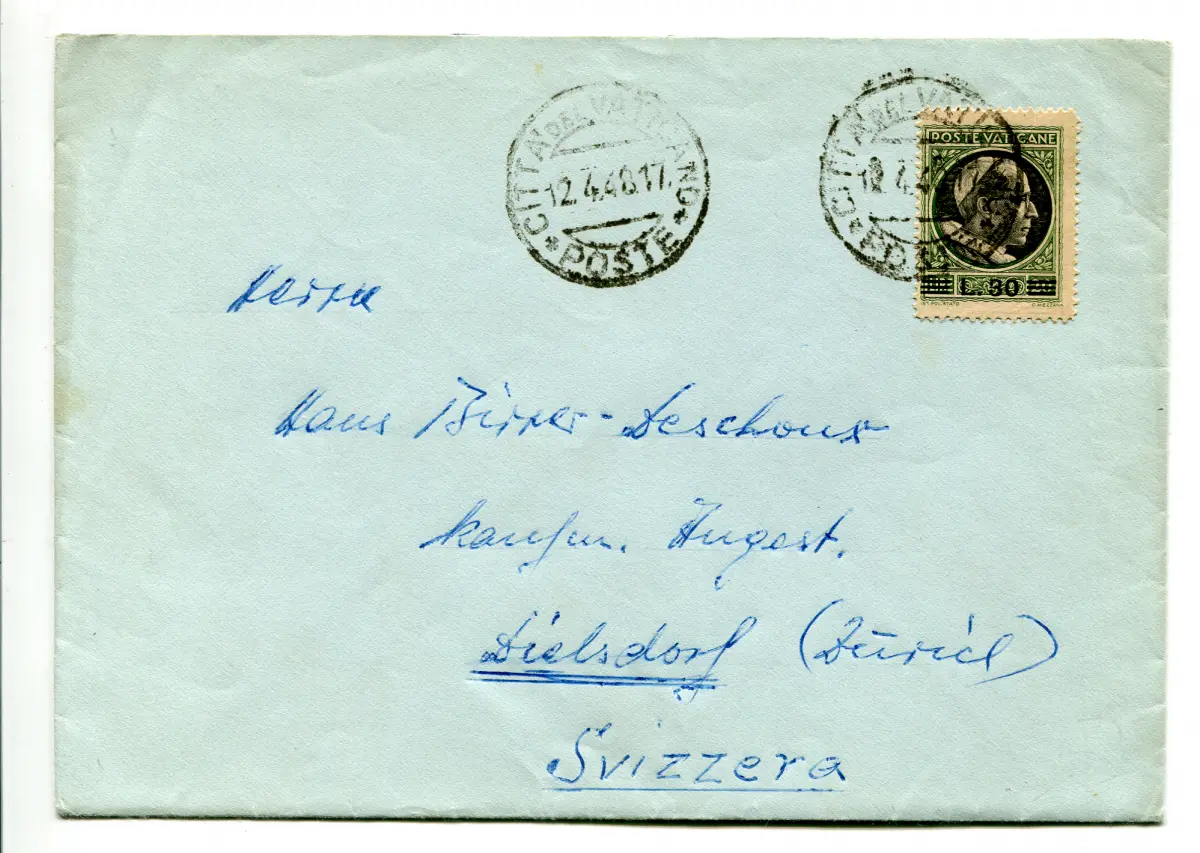 CITTA' DEL VATICANO
12.4.48.17.
POSTE
CITTA' DEL VAT
12.4.4
POSTE VATICANE
L. 30
Herrn
Hans Birrer-Deschoux
kaufm. Angest.
Dielsdorf (Zürich)
Svizzera